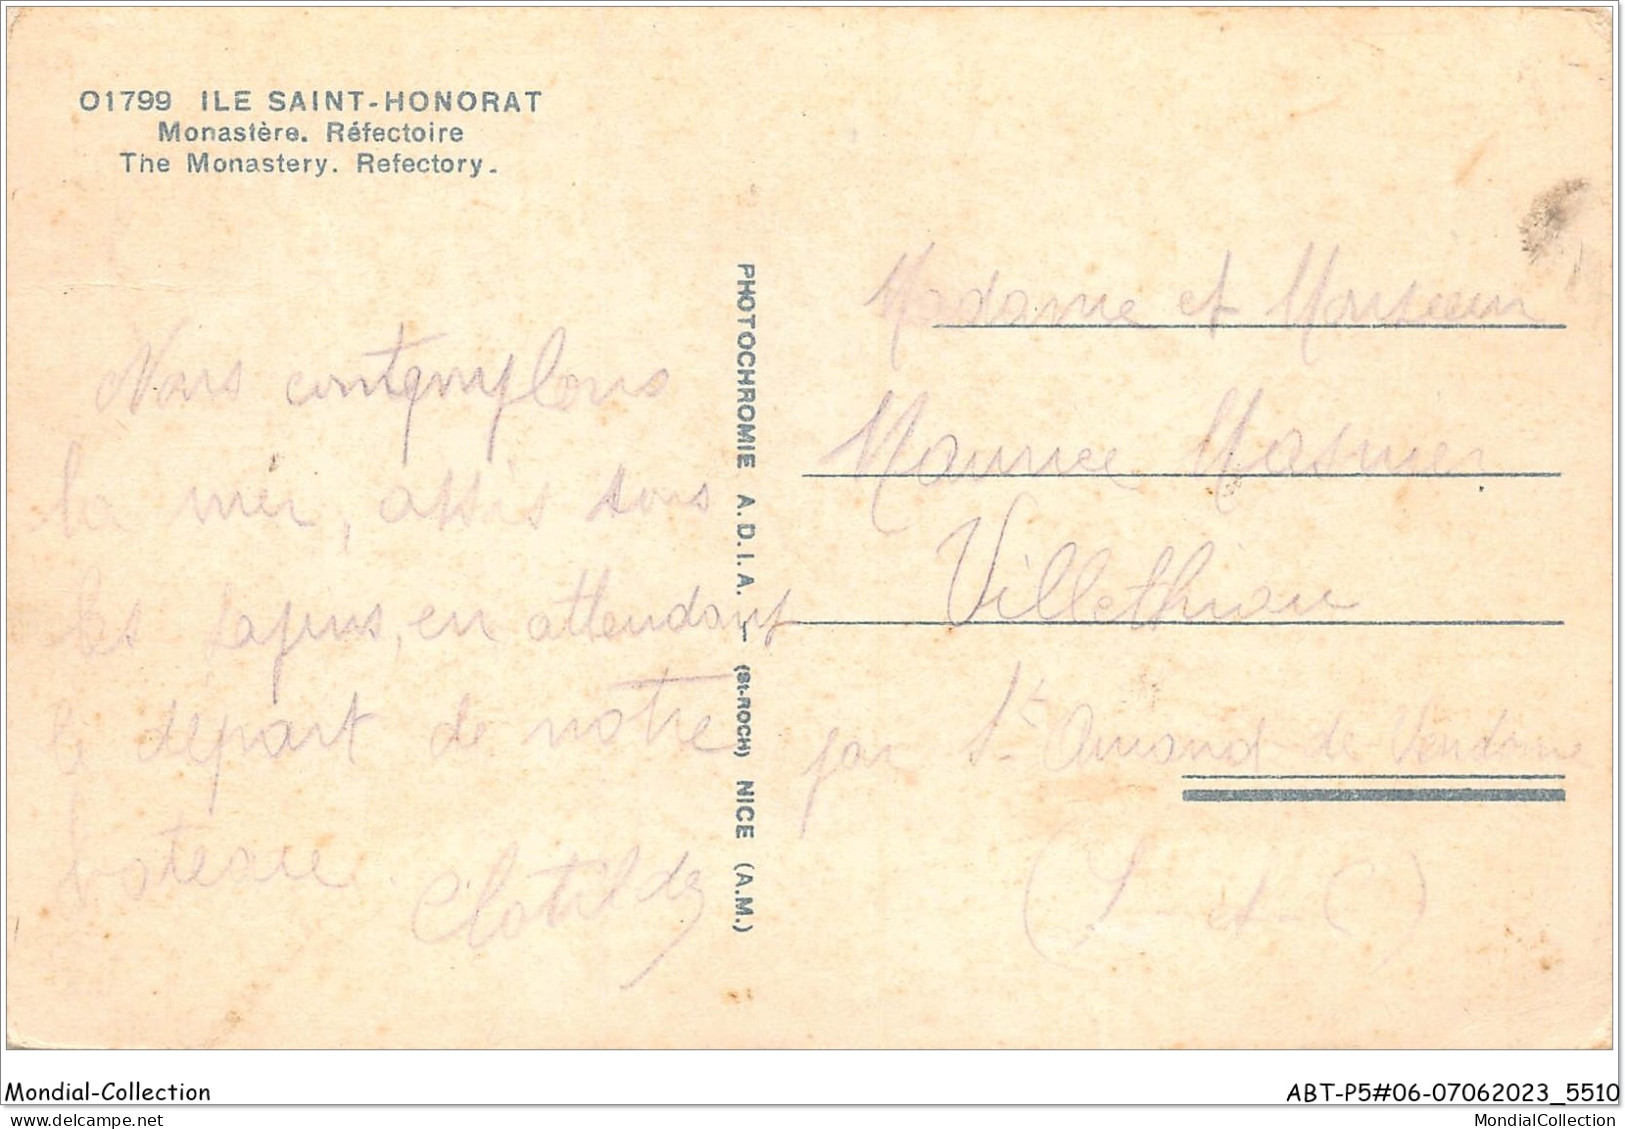 01799 ILE SAINT-HONORAT
Monastère. Réfectoire
The Monastery. Refectory.
Nous contemplons
la mer, assis sous
les sapins, en attendant
le départ de notre
bateau. Clotilde
PHOTOCHROMIE A.D.I.A. - (St-ROCH) NICE (A.M.)
Madame et Monsieur
Maurice
Villethiou
par St Amand de Vendome
(L-et-C)
Mondial-Collection
ABT-P5#06-07062023_5510
Mondial-Collection.net
MondialCollection